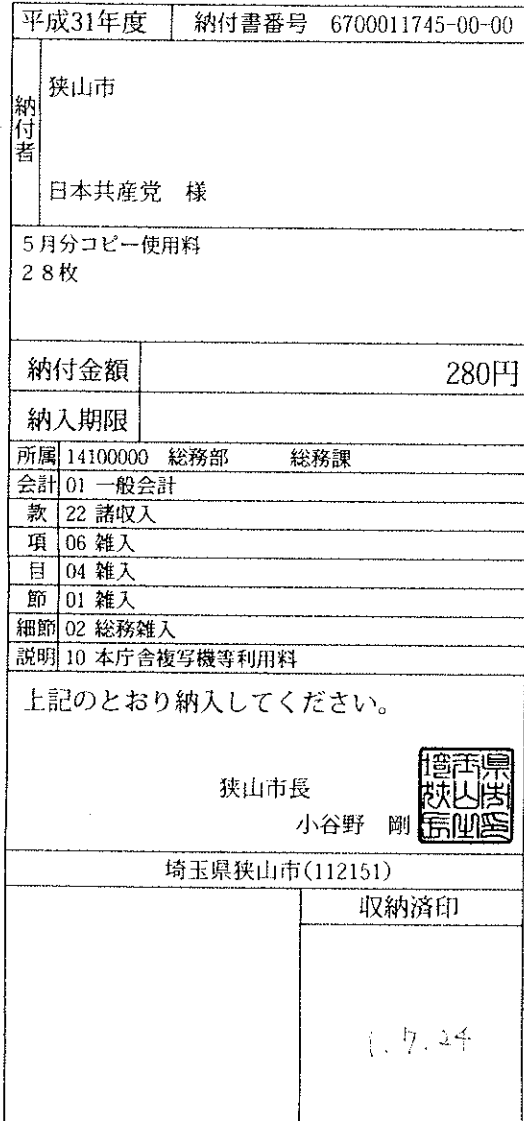 平成31年度 納付書番号 6700011745-00-00
納付者
狭山市
日本共産党 様
5月分コピー使用料
28枚
納付金額 280円
納入期限
所属 14100000 総務部 総務課
会計 01 一般会計
款 22 諸収入
項 06 雑入
目 04 雑入
節 01 雑入
細節 02 総務雑入
説明 10 本庁舎複写機等利用料
上記のとおり納入してください。
狭山市長
小谷野 剛
埼玉県狭山市(112151)
収納済印
1.7.24